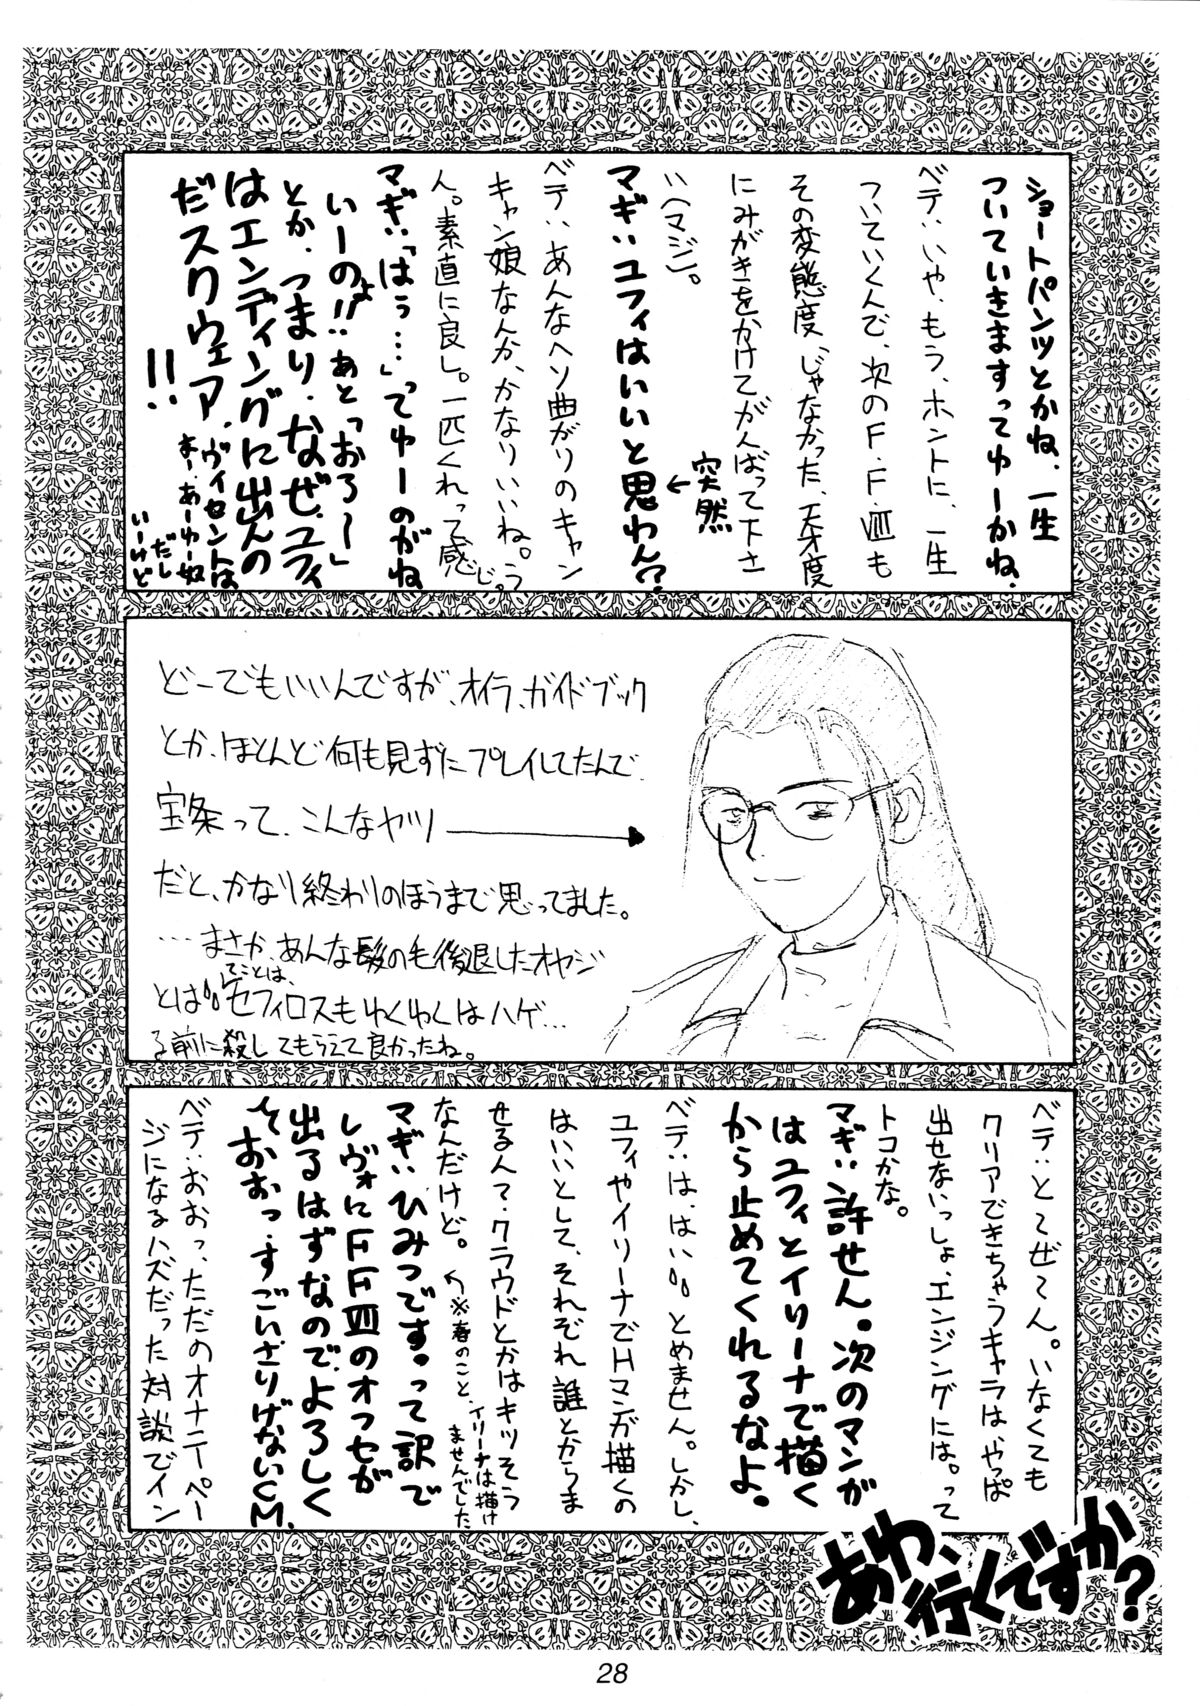 ショートパンツとかね、一生
ついていきますってゆーかね。
ベテ:いや、もう、ホントに、一生
ついていくんで、次のF・F・Ⅷも
その変態度、じゃなかった、天才度
にみがきをかけてがんばって下さ
い(マジ)。
マギ:ユフィはいいと思わん?
←突然
ベテ:あんなヘソ曲がりのキャン
キャン娘なんか、かなりいいね。う
ん。素直に良し。一匹くれって感じ。
マギ:「はぅ…」ってゅーのがね
いーのよ!!あと「おろ〜」
とか。つまり、なぜユフィ
はエンディングに出んの
だスクウェア!!
ヴィセントは
まー、あーゆー奴
だし
いーけど
どーでもいいんですが、オイラ、ガイドブック
とか、ほとんど何も見ずにプレイしてたんで、
宝条って、こんなヤツ→
だと、かなり終わりのほうまで思ってました。
…まさか、あんな髪の毛後退したオヤジ
とは。。てことは、セフィロスもゆくゆくはハゲ…
る前に殺してもらえて良かったね。
ベテ:とーぜーん。いなくても
クリアできちゃうキャラは、やっぱ
出せないっしょ、エンジングには。って
トコかな。
マギ:許せん。次のマンガ
はユフィとイリーナで描く
から止めてくれるなよ。
ベテ:は、はい。。とめません。しかし、
ユフィやイリーナでHマンガ描くの
はいいとして、それぞれ誰とからま
せるんで?クラウドとかはキツそう
なんだけど。
※春のこと、イリーナは描け
ませんでした
マギ:ひみつです。って訳で
レヴォにFFⅦのオフセが
出るはずなのでよろしく
ておおっ、すごいさりげないCM。
ベテ:おおっ、ただのオナニーペー
ジになるハズだった対談でイン
あわ、行くですか?
28